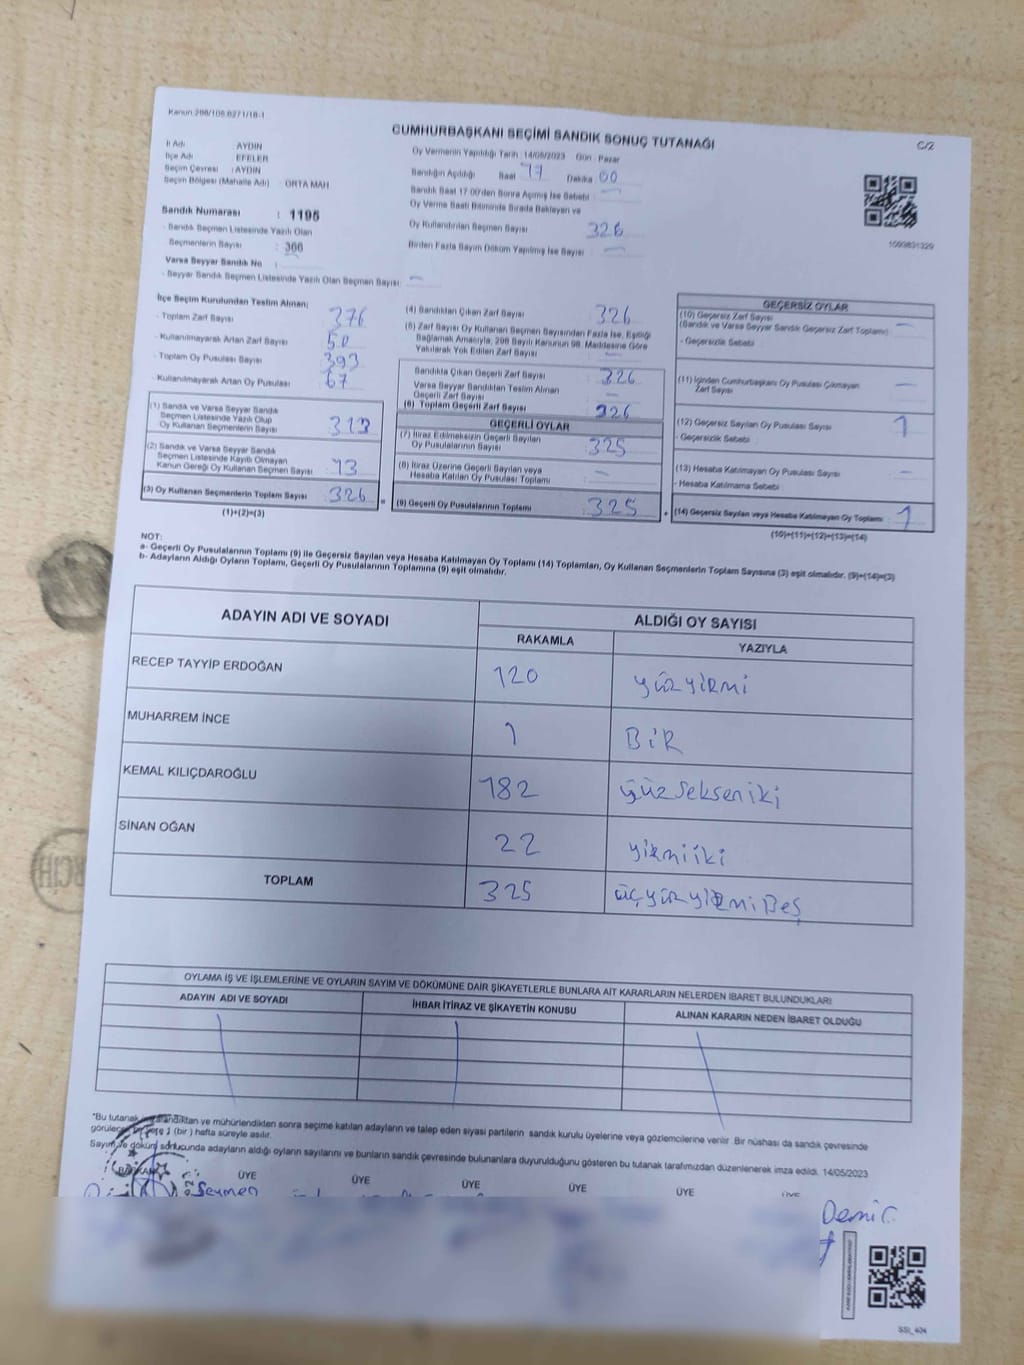 Kanun:298/106.6271/18-1
CUMHURBAŞKANI SEÇİMİ SANDIK SONUÇ TUTANAĞI
C/2
İl Adı : AYDIN
İlçe Adı : EFELER
Seçim Çevresi : AYDIN
Seçim Bölgesi (Mahalle Adı) : ORTA MAH.
Oy Vermenin Yapıldığı Tarih :14/05/2023 Gün : Pazar
Sandığın Açıldığı Saat 17 Dakika :00
Sandık Saat 17:00'den Sonra Açılmış İse Sebebi : —
Oy Verme Saati Bitiminde Sırada Bekleyen ve
Oy Kullandırılan Seçmen Sayısı : 326
Birden Fazla Sayım Döküm Yapılmış İse Sayısı : —
Sandık Numarası : 1195
- Sandık Seçmen Listesinde Yazılı Olan
Seçmenlerin Sayısı : 366
Varsa Seyyar Sandık No :
- Seyyar Sandık Seçmen Listesinde Yazılı Olan Seçmen Sayısı: —
İlçe Seçim Kurulundan Teslim Alınan;
- Toplam Zarf Sayısı : 376
- Kullanılmayarak Artan Zarf Sayısı : 50
- Toplam Oy Pusulası Sayısı : 393
- Kullanılmayarak Artan Oy Pusulası : 67
(1) Sandık ve Varsa Seyyar Sandık
Seçmen Listesinde Yazılı Olup
Oy Kullanan Seçmenlerin Sayısı : 313
(2) Sandık ve Varsa Seyyar Sandık
Seçmen Listesinde Kayıtlı Olmayan
Kanun Gereği Oy Kullanan Seçmen Sayısı : 13
(3) Oy Kullanan Seçmenlerin Toplam Sayısı : 326 =
(1)+(2)=(3)
(4) Sandıktan Çıkan Zarf Sayısı : 326
(5) Zarf Sayısı Oy Kullanan Seçmen Sayısından Fazla İse, Eşitliği
Bağlamak Amacıyla, 298 Sayılı Kanunun 98. Maddesine Göre
Yakılarak Yok Edilen Zarf Sayısı : —
Sandıkta Çıkan Geçerli Zarf Sayısı : 326
Varsa Seyyar Sandıktan Teslim Alınan
Geçerli Zarf Sayısı : —
(6) Toplam Geçerli Zarf Sayısı : 326
GEÇERLİ OYLAR
(7) İtiraz Edilmeksizin Geçerli Sayılan
Oy Pusulalarının Sayısı : 325
(8) İtiraz Üzerine Geçerli Sayılan veya
Hesaba Katılan Oy Pusulası Toplamı : —
(9) Geçerli Oy Pusulalarının Toplamı : 325 +
GEÇERSİZ OYLAR
(10) Geçersiz Zarf Sayısı : —
(Sandık ve Varsa Seyyar Sandık Geçersiz Zarf Toplamı)
- Geçersizlik Sebebi :
(11) İçinden Cumhurbaşkanı Oy Pusulası Çıkmayan
Zarf Sayısı : —
(12) Geçersiz Sayılan Oy Pusulası Sayısı : 1
- Geçersizlik Sebebi :
(13) Hesaba Katılmayan Oy Pusulası Sayısı : —
- Hesaba Katılmama Sebebi :
(14) Geçersiz Sayılan veya Hesaba Katılmayan Oy Toplamı : 1
(10)+(11)+(12)+(13)=(14)
NOT:
a- Geçerli Oy Pusulalarının Toplamı (9) ile Geçersiz Sayılan veya Hesaba Katılmayan Oy Toplamı (14) Toplamları, Oy Kullanan Seçmenlerin Toplam Sayısına (3) eşit olmalıdır. (9)+(14)=(3)
b- Adayların Aldığı Oyların Toplamı, Geçerli Oy Pusulalarının Toplamına (9) eşit olmalıdır.
ADAYIN ADI VE SOYADI ALDIĞI OY SAYISI
RAKAMLA YAZIYLA
RECEP TAYYİP ERDOĞAN 120 yüzyirmi
MUHARREM İNCE 1 BİR
KEMAL KILIÇDAROĞLU 182 yüzSekseniki
SİNAN OĞAN 22 yirmiiki
TOPLAM 325 üçyüzyirmiBeş
OYLAMA İŞ VE İŞLEMLERİNE VE OYLARIN SAYIM VE DÖKÜMÜNE DAİR ŞİKAYETLERLE BUNLARA AİT KARARLARIN NELERDEN İBARET BULUNDUKLARI
ADAYIN ADI VE SOYADI İHBAR İTİRAZ VE ŞİKAYETİN KONUSU ALINAN KARARIN NEDEN İBARET OLDUĞU
*Bu tutanak imzalandıktan ve mühürlendikten sonra seçime katılan adayların ve talep eden siyasi partilerin sandık kurulu üyelerine veya gözlemcilerine verilir. Bir nüshası da sandık çevresinde
görülecek bir yere 1 (bir) hafta süreyle asılır.
Sayım ve döküm sonucunda adayların aldığı oyların sayılarını ve bunların sandık çevresinde bulunanlara duyurulduğunu gösteren bu tutanak tarafımızdan düzenlenerek imza edildi. 14/05/2023
BAŞKAN ÜYE ÜYE ÜYE ÜYE ÜYE ÜYE
Seymen
Demir
SSİ_404